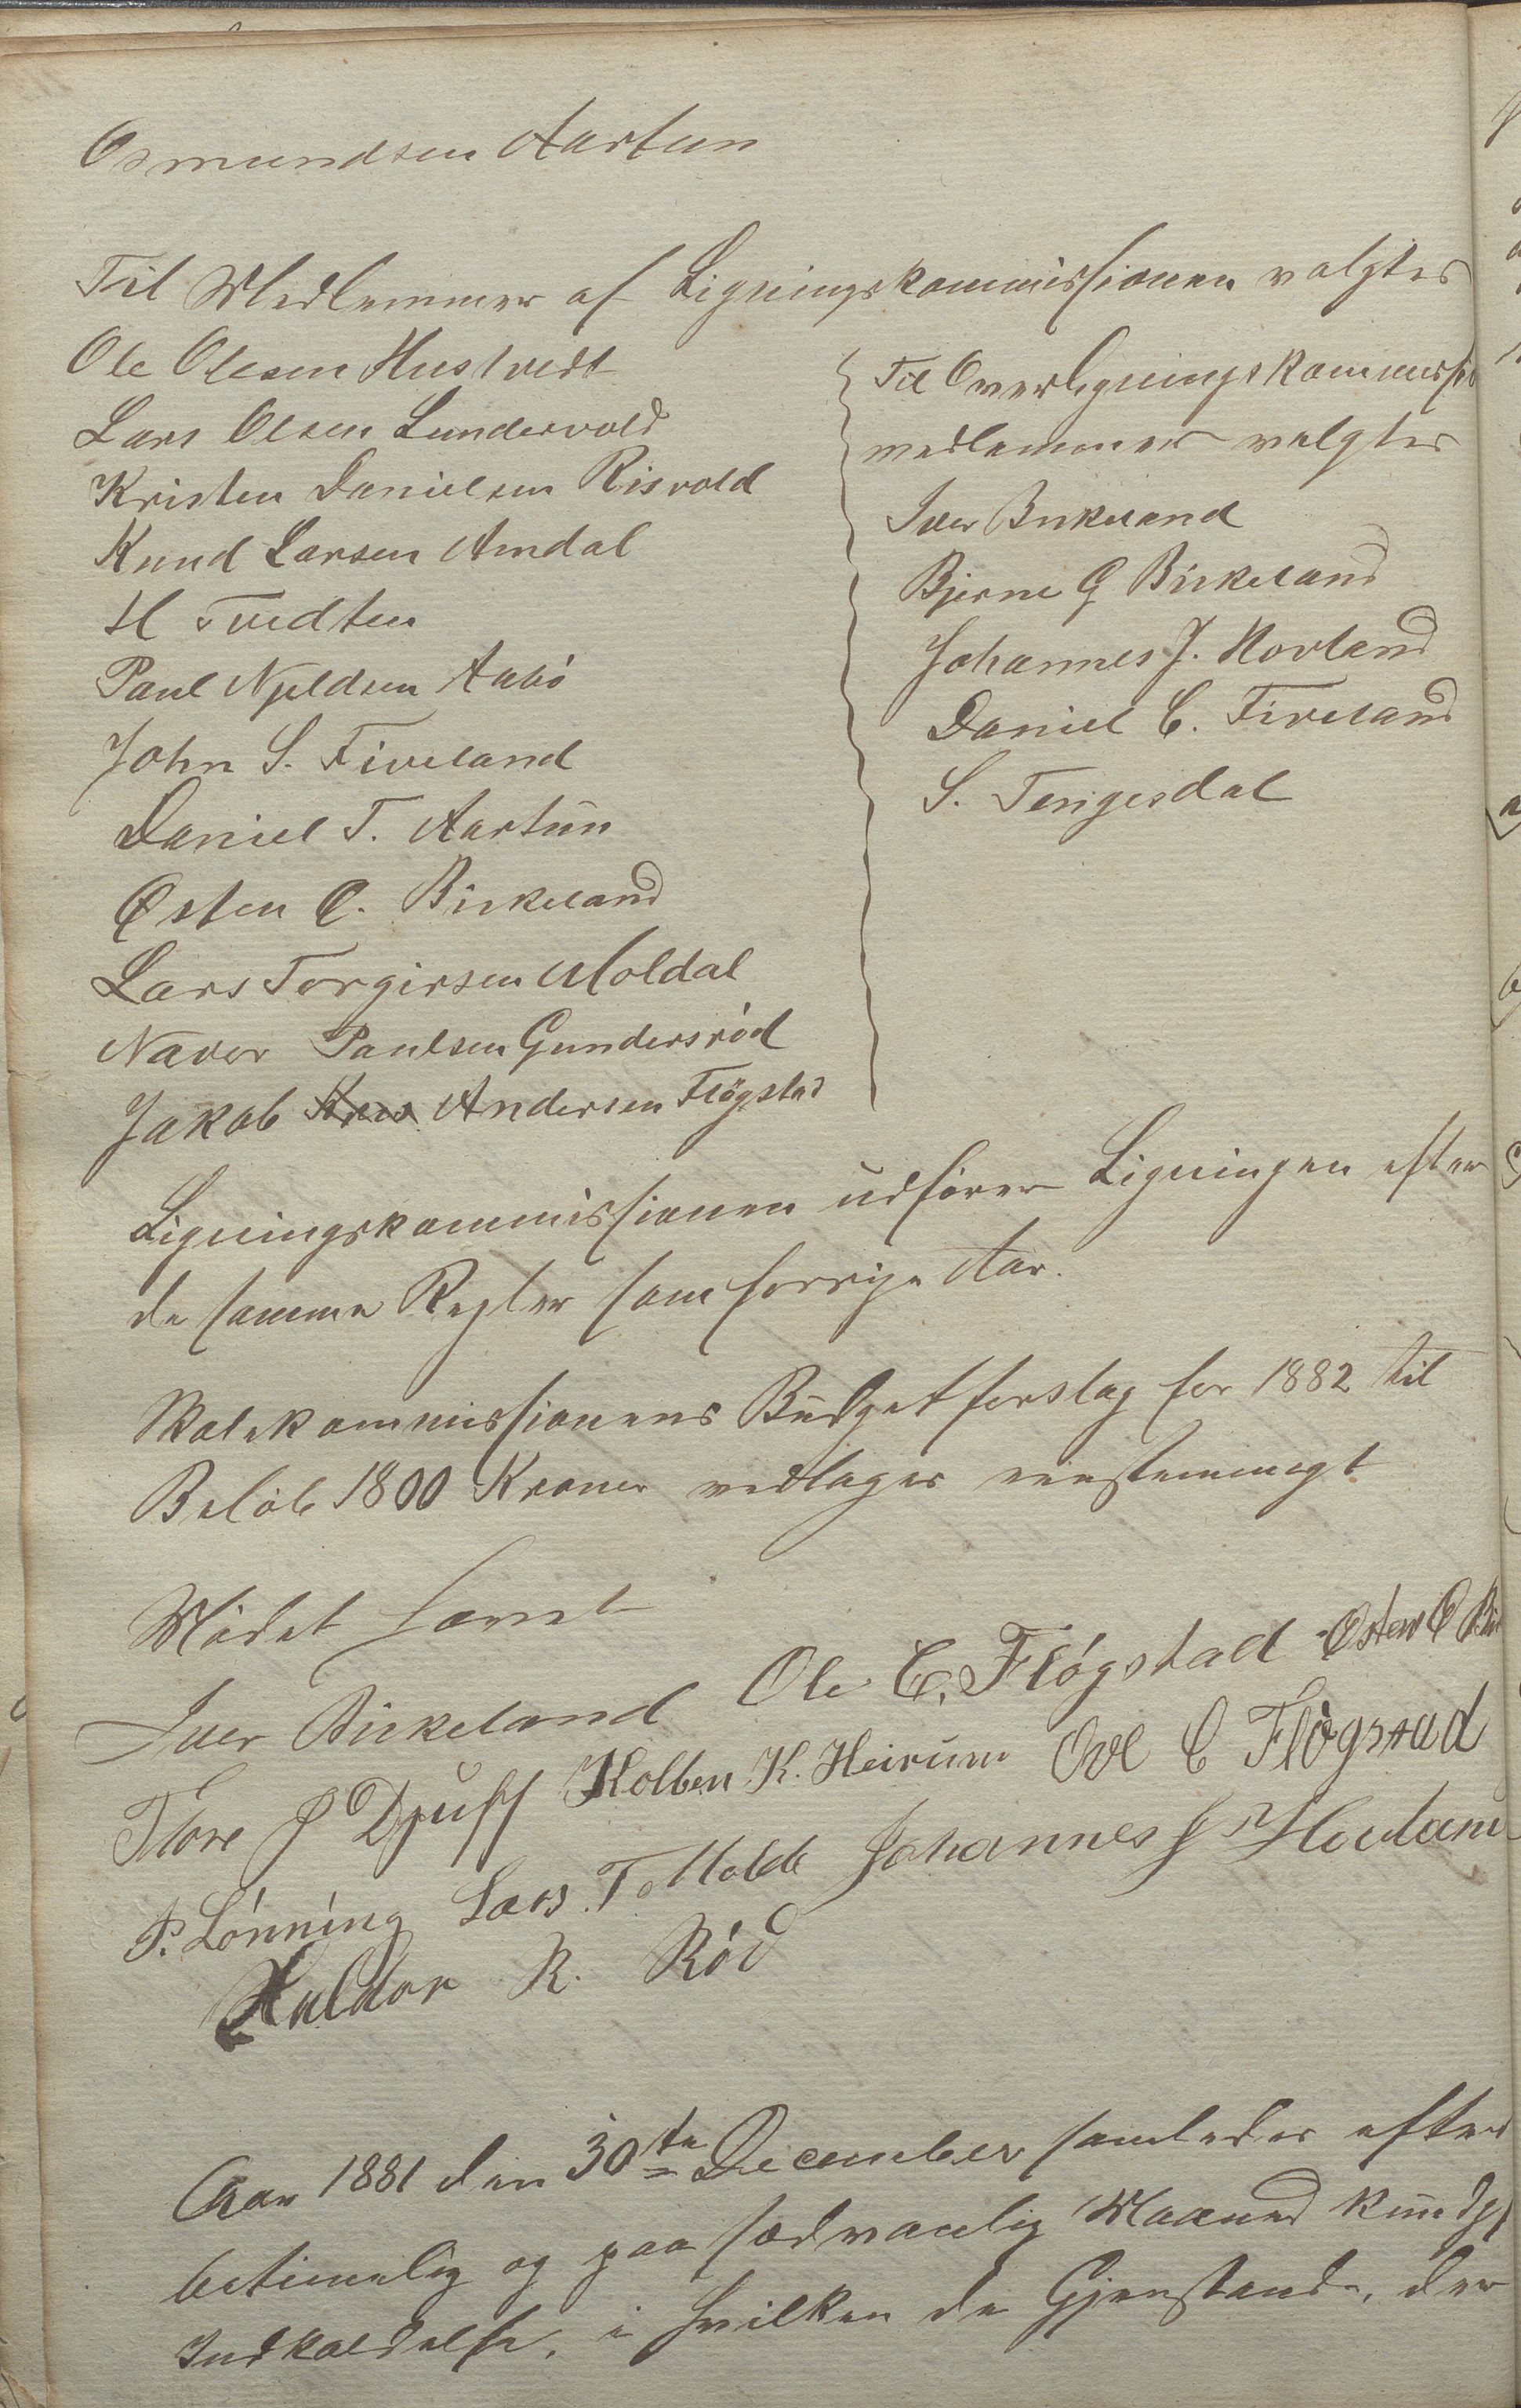 Osmundsen Aartun
Til Medlemmer af Ligningskommissionen valgtes
Ole Olesen Hustvedt
Lars Olsen Lundervold
Kristen Danielsen Risvold
Knud Larsen Amdal
H Tvedten
Paul Njeldsen Aabö
John S. Fiveland
Daniel T. Aartun
Østen C. Birkeland
Lars Torgirsen Moldal
Naver Paulsen Gundersröd
Jakob Andersen Flögstad
Til Overligningskommissio
medlemmer valgtes
Iver Birkeland
Bjerne G Birkeland
Johannes J. Hovland
Daniel C. Fiveland
S. Tengesdal
Ligningskommissionen udförer Ligningen efter
de samme Regler som forrige Aar.
Skolekommissionens Budgetforslag for 1882 til
Belöb 1800 Kroner vedtages eenstemmigt
Mödet hævet
Iver Birkeland Ole C. Flögstad Østen C Bir
Tore P Djuff Kolben K. Heirum Ole C Flögstad
P. Lönning Lars. T. Molde Johannes J Hovland
Haldor R. Röd
Aar 1881 den 30te December samledes efter
betimelig og paa sædvanlig Maaned kundgj
Indkaldelse, i hvilken de Gjenstande, der